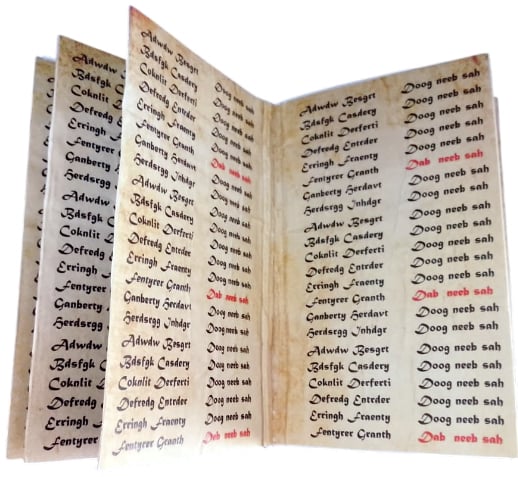 Adwdw
Bdsfgk
Coknlit
Defredg
Erringh
Fentyrer
Ganberty
Herdsrgg
Adwdw
Bdsfgk
Coknlit
Defredg
Erringh
Fentyrer
Ganberty
Herdsrgg
Adwdw
Bdsfgk
Coknlit
Defredg
Erringh
Fentyrer
Adwdw Besgrt Doog neeb sah
Bdsfgk Casdery Doog neeb sah
Coknlit Derferti Doog neeb sah
Defredg Entrder Doog neeb sah
Erringh Fraenty Doog neeb sah
Fentyrer Granth Dab neeb sah
Ganberty Herdavt Doog neeb sah
Herdsrgg Inhdgr Doog neeb sah
Adwdw Besgrt Doog neeb sah
Bdsfgk Casdery Doog neeb sah
Coknlit Derferti Doog neeb sah
Defredg Entrder Doog neeb sah
Erringh Fraenty Doog neeb sah
Fentyrer Granth Dab neeb sah
Ganberty Herdavt Doog neeb sah
Herdsrgg Inhdgr Doog neeb sah
Adwdw Besgrt Doog neeb sah
Bdsfgk Casdery Doog neeb sah
Coknlit Derferti Doog neeb sah
Defredg Entrder Doog neeb sah
Erringh Fraenty Doog neeb sah
Fentyrer Granth Dab neeb sah
Adwdw Besgrt Doog neeb sah
Bdsfgk Casdery Doog neeb sah
Coknlit Derferti Doog neeb sah
Defredg Entrder Doog neeb sah
Erringh Fraenty Doog neeb sah
Fentyrer Granth Dab neeb sah
Ganberty Herdavt Doog neeb sah
Herdsrgg Inhdgr Doog neeb sah
Adwdw Besgrt Doog neeb sah
Bdsfgk Casdery Doog neeb sah
Coknlit Derferti Doog neeb sah
Defredg Entrder Doog neeb sah
Erringh Fraenty Doog neeb sah
Fentyrer Granth Dab neeb sah
Ganberty Herdavt Doog neeb sah
Herdsrgg Inhdgr Doog neeb sah
Adwdw Besgrt Doog neeb sah
Bdsfgk Casdery Doog neeb sah
Coknlit Derferti Doog neeb sah
Defredg Entrder Doog neeb sah
Erringh Fraenty Doog neeb sah
Fentyrer Granth Dab neeb sah